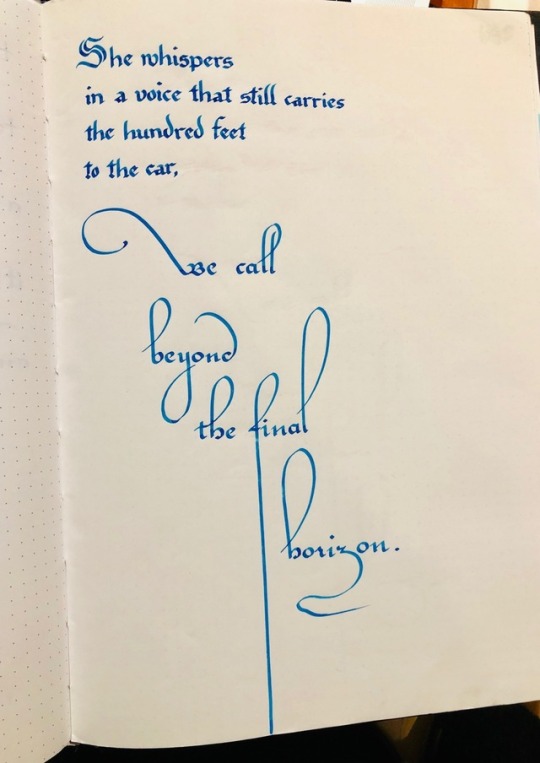 She whispers
in a voice that still carries
the hundred feet
to the car,
we call
beyond
the final
horizon.